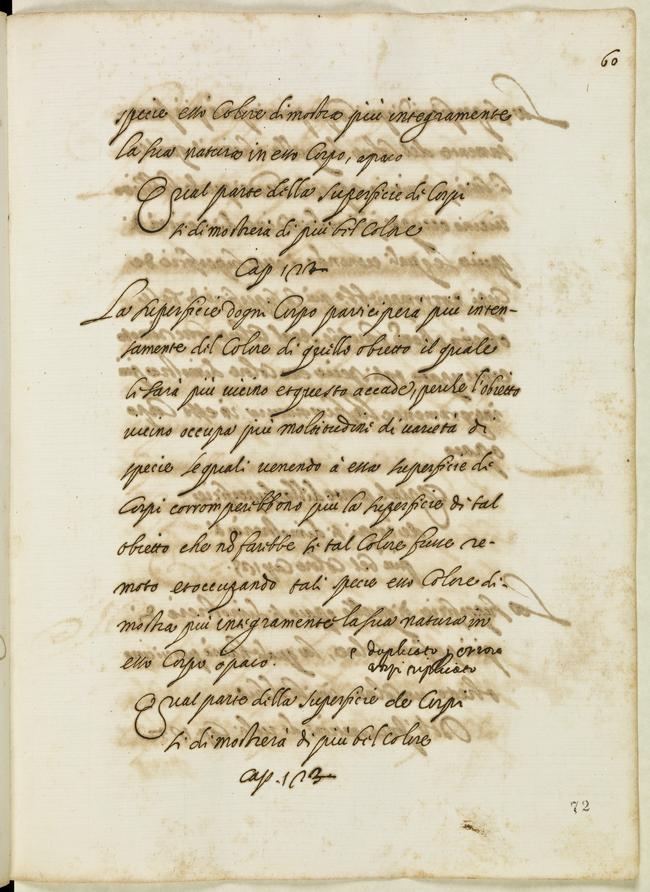 60
specie esso Colore dimostra più integramente
la sua natura in esso Corpo, opaco
Qual parte della superficie de Corpi
si dimostrerà di più bel Colore
Cap 123
La superficie dogni Corpo participerà più inten-
samente del Colore di quello obietto il quale
li sarà più uicino et questo accade, perche l'obietto
uicino occupa più moltitudine di varietà di
specie le quali venendo à essa superficie de
Corpi corromperebbono più la superficie di tal
obietto che nō farebbe se tal Colore fusse re-
moto et occupando tali specie esso Colore di-
mostra più integramente la sua natura in
esso Corpo opaco.
e duplicato
Qual parte della superficie de Corpi
si dimostrerà di più bel Colore
Cap. 123
72